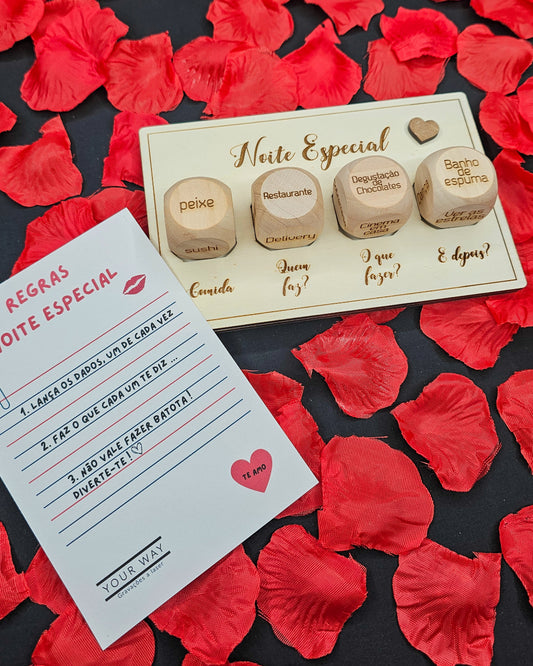 Noite Especial
peixe
sushi
Restaurante
Delivery
Degustação
de
Chocolates
Cinema
em
casa
Banho
de
espuma
Ver as
estrelas
Comida
Quem
faz?
O que
fazer?
E depois?
REGRAS
NOITE ESPECIAL
1. LANÇA OS DADOS, UM DE CADA VEZ
2. FAZ O QUE CADA UM TE DIZ ...
3. NÃO VALE FAZER BATOTA!
DIVERTE-TE!
TE AMO
YOUR WAY
Gravações a laser